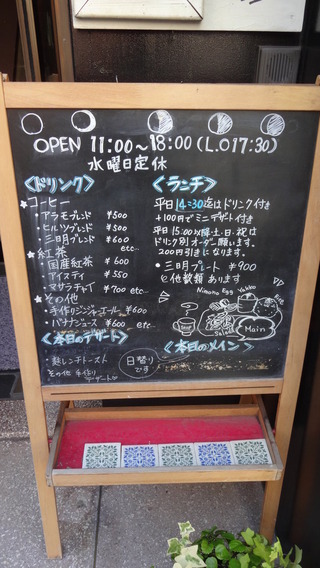 OPEN 11:00〜18:00 (L.O 17:30)
水曜日定休
<ドリンク>
★コーヒー
・アラモブレンド ¥500
・ヒルツブレンド ¥500
・三日月ブレンド ¥600
etc…
★紅茶
・国産紅茶 ¥600
・アイスティ ¥550
・マサラチャイ ¥700 etc…
★その他
・手作りジンジャーエール ¥600
・バナナジュース ¥600 etc…
<本日のデザート>
フレンチトースト
その他 手作り
デザート♡
日替りです
<ランチ>
平日14:30迄はドリンク付き
+100円でミニデザート付き
平日15:00以降・土・日・祝は
ドリンク別オーダー願います。
200円引きになります。
・三日月プレート ¥900
他 数種類あります
Nimono Egg Yakko
Rice
Salad
Main
<本日のメイン>